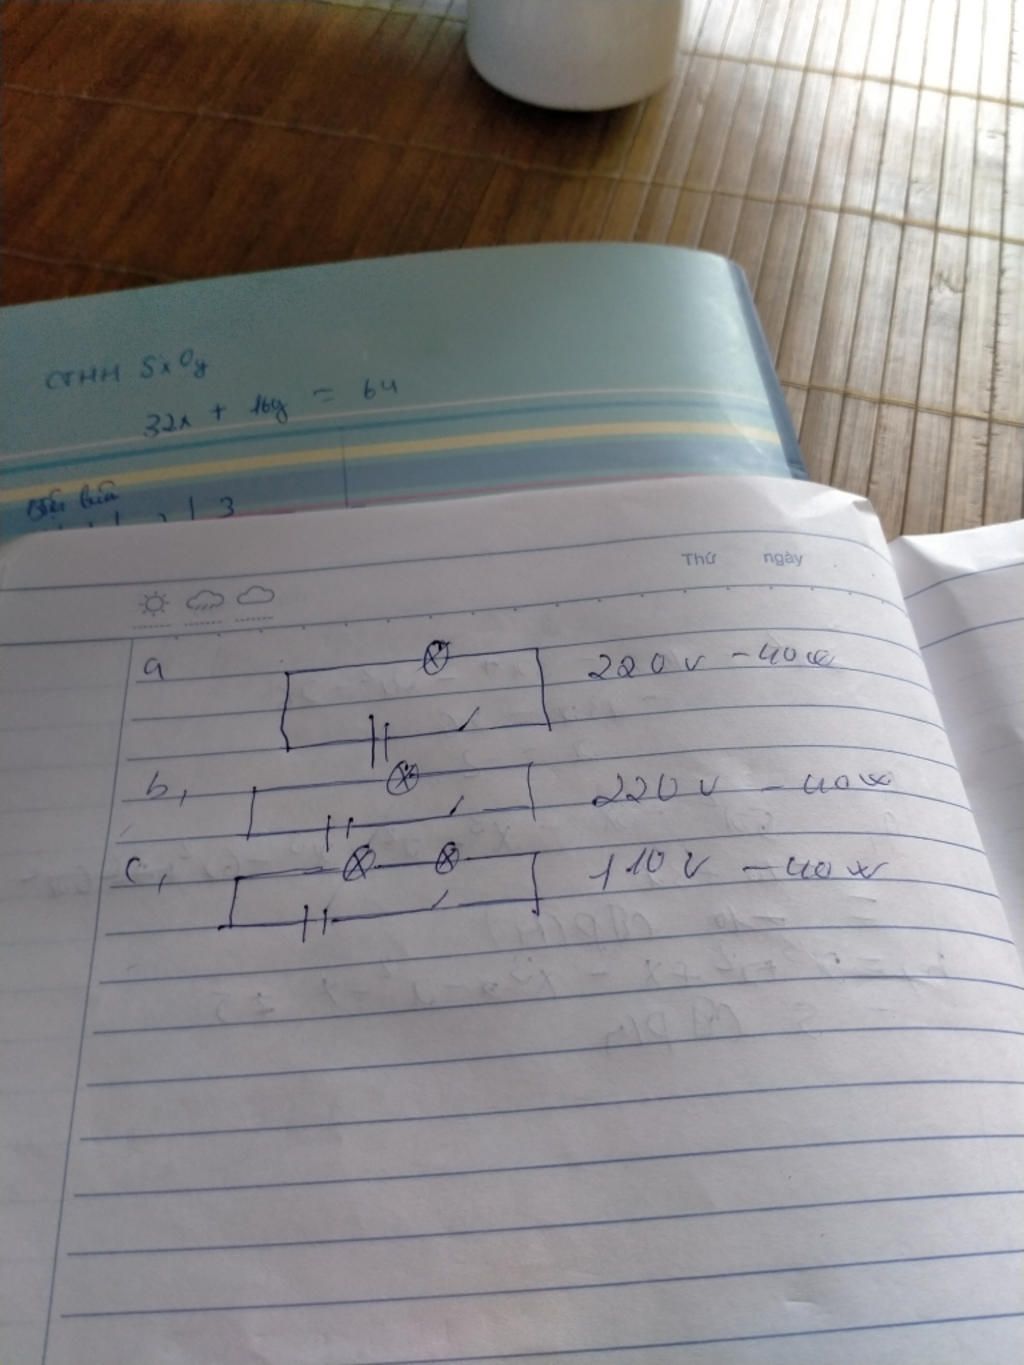 CTHH SxOy
32x + 16y = 64
3
Thứ ngày
a 220 V - 40W
b, 220 V - 40W
c, 110 V - 40W